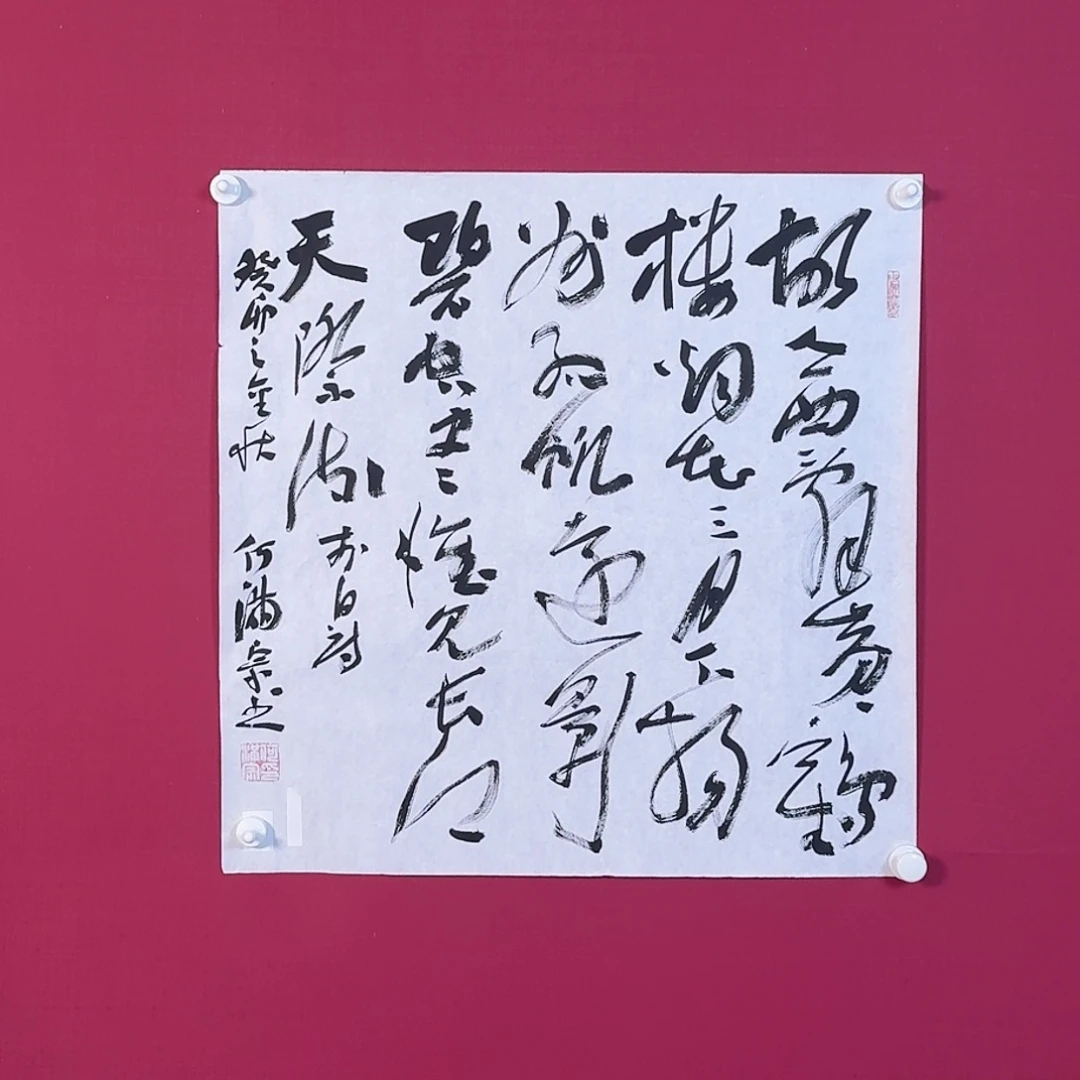 故人西辭黄鶴
楼烟花三月下揚
州孤帆遠影
碧空尽惟见长江
天際流 李白诗
癸卯之金秋 何满宗书